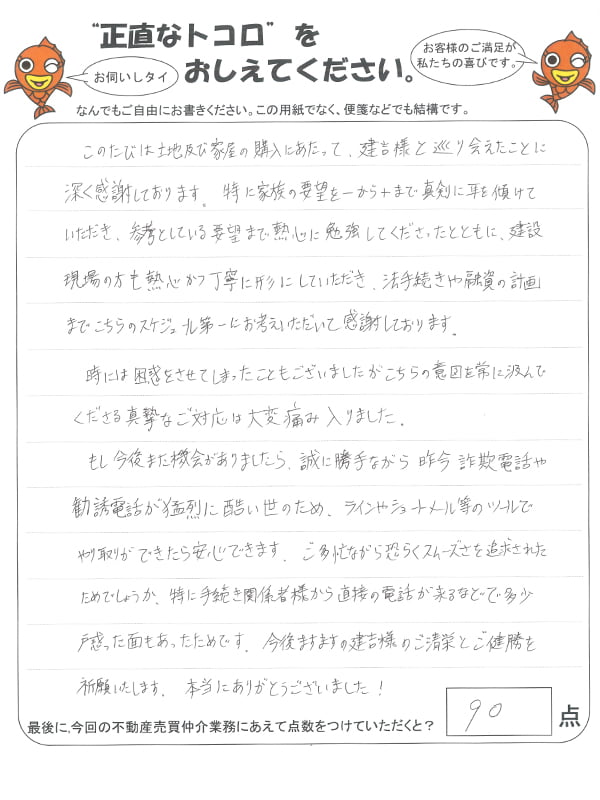 “正直なトコロ”を
おしえてください。
お伺いしタイ
お客様のご満足が
私たちの喜びです。
なんでもご自由にお書きください。この用紙でなく、便箋などでも結構です。
このたびは土地及び家屋の購入にあたって、建吉様と巡り会えたことに
深く感謝しております。特に家族の要望を一から十まで真剣に耳を傾けて
いただき、参考としている要望まで熱心に勉強してくださったとともに、建設
現場の方も熱心かつ丁寧に形にしていただき、法手続きや融資の計画
までこちらのスケジュール第一にお考えいただいて感謝しております。
時には困惑をさせてしまったこともございましたがこちらの意図を常に汲んで
くださる真摯なご対応は大変痛み入りました。
もし今後また機会がありましたら、誠に勝手ながら昨今詐欺電話や
勧誘電話が猛烈に酷い世のため、ラインやショートメール等のツールで
やり取りができたら安心できます。ご多忙ながら恐らくスムーズさを追求された
ためでしょうか、特に手続き関係者様から直接の電話が来るなどで多少
戸惑った面もあったためです。今後ますますの建吉様のご清栄とご健勝を
祈願いたします。本当にありがとうございました！
最後に、今回の不動産売買仲介業務にあえて点数をつけていただくと？ 90 点